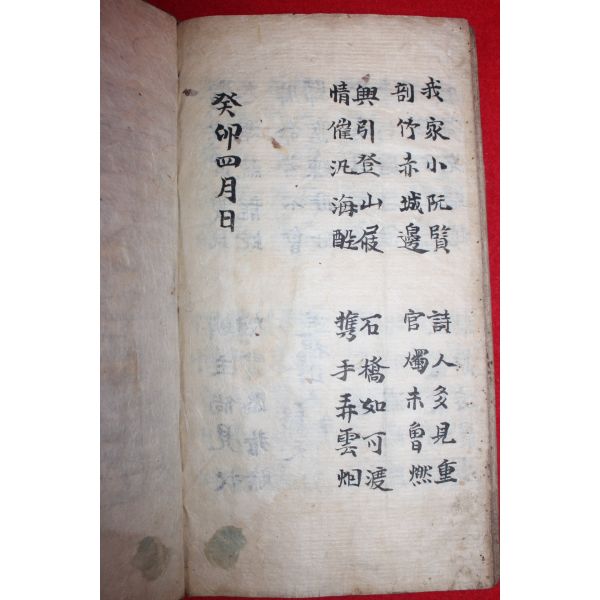 我家小阮賢
剖竹赤城邊
詩人多見重
官燭未曾燃
興引登山屐
情催汎海
石橋如可渡
携手弄雲烟
癸卯四月日